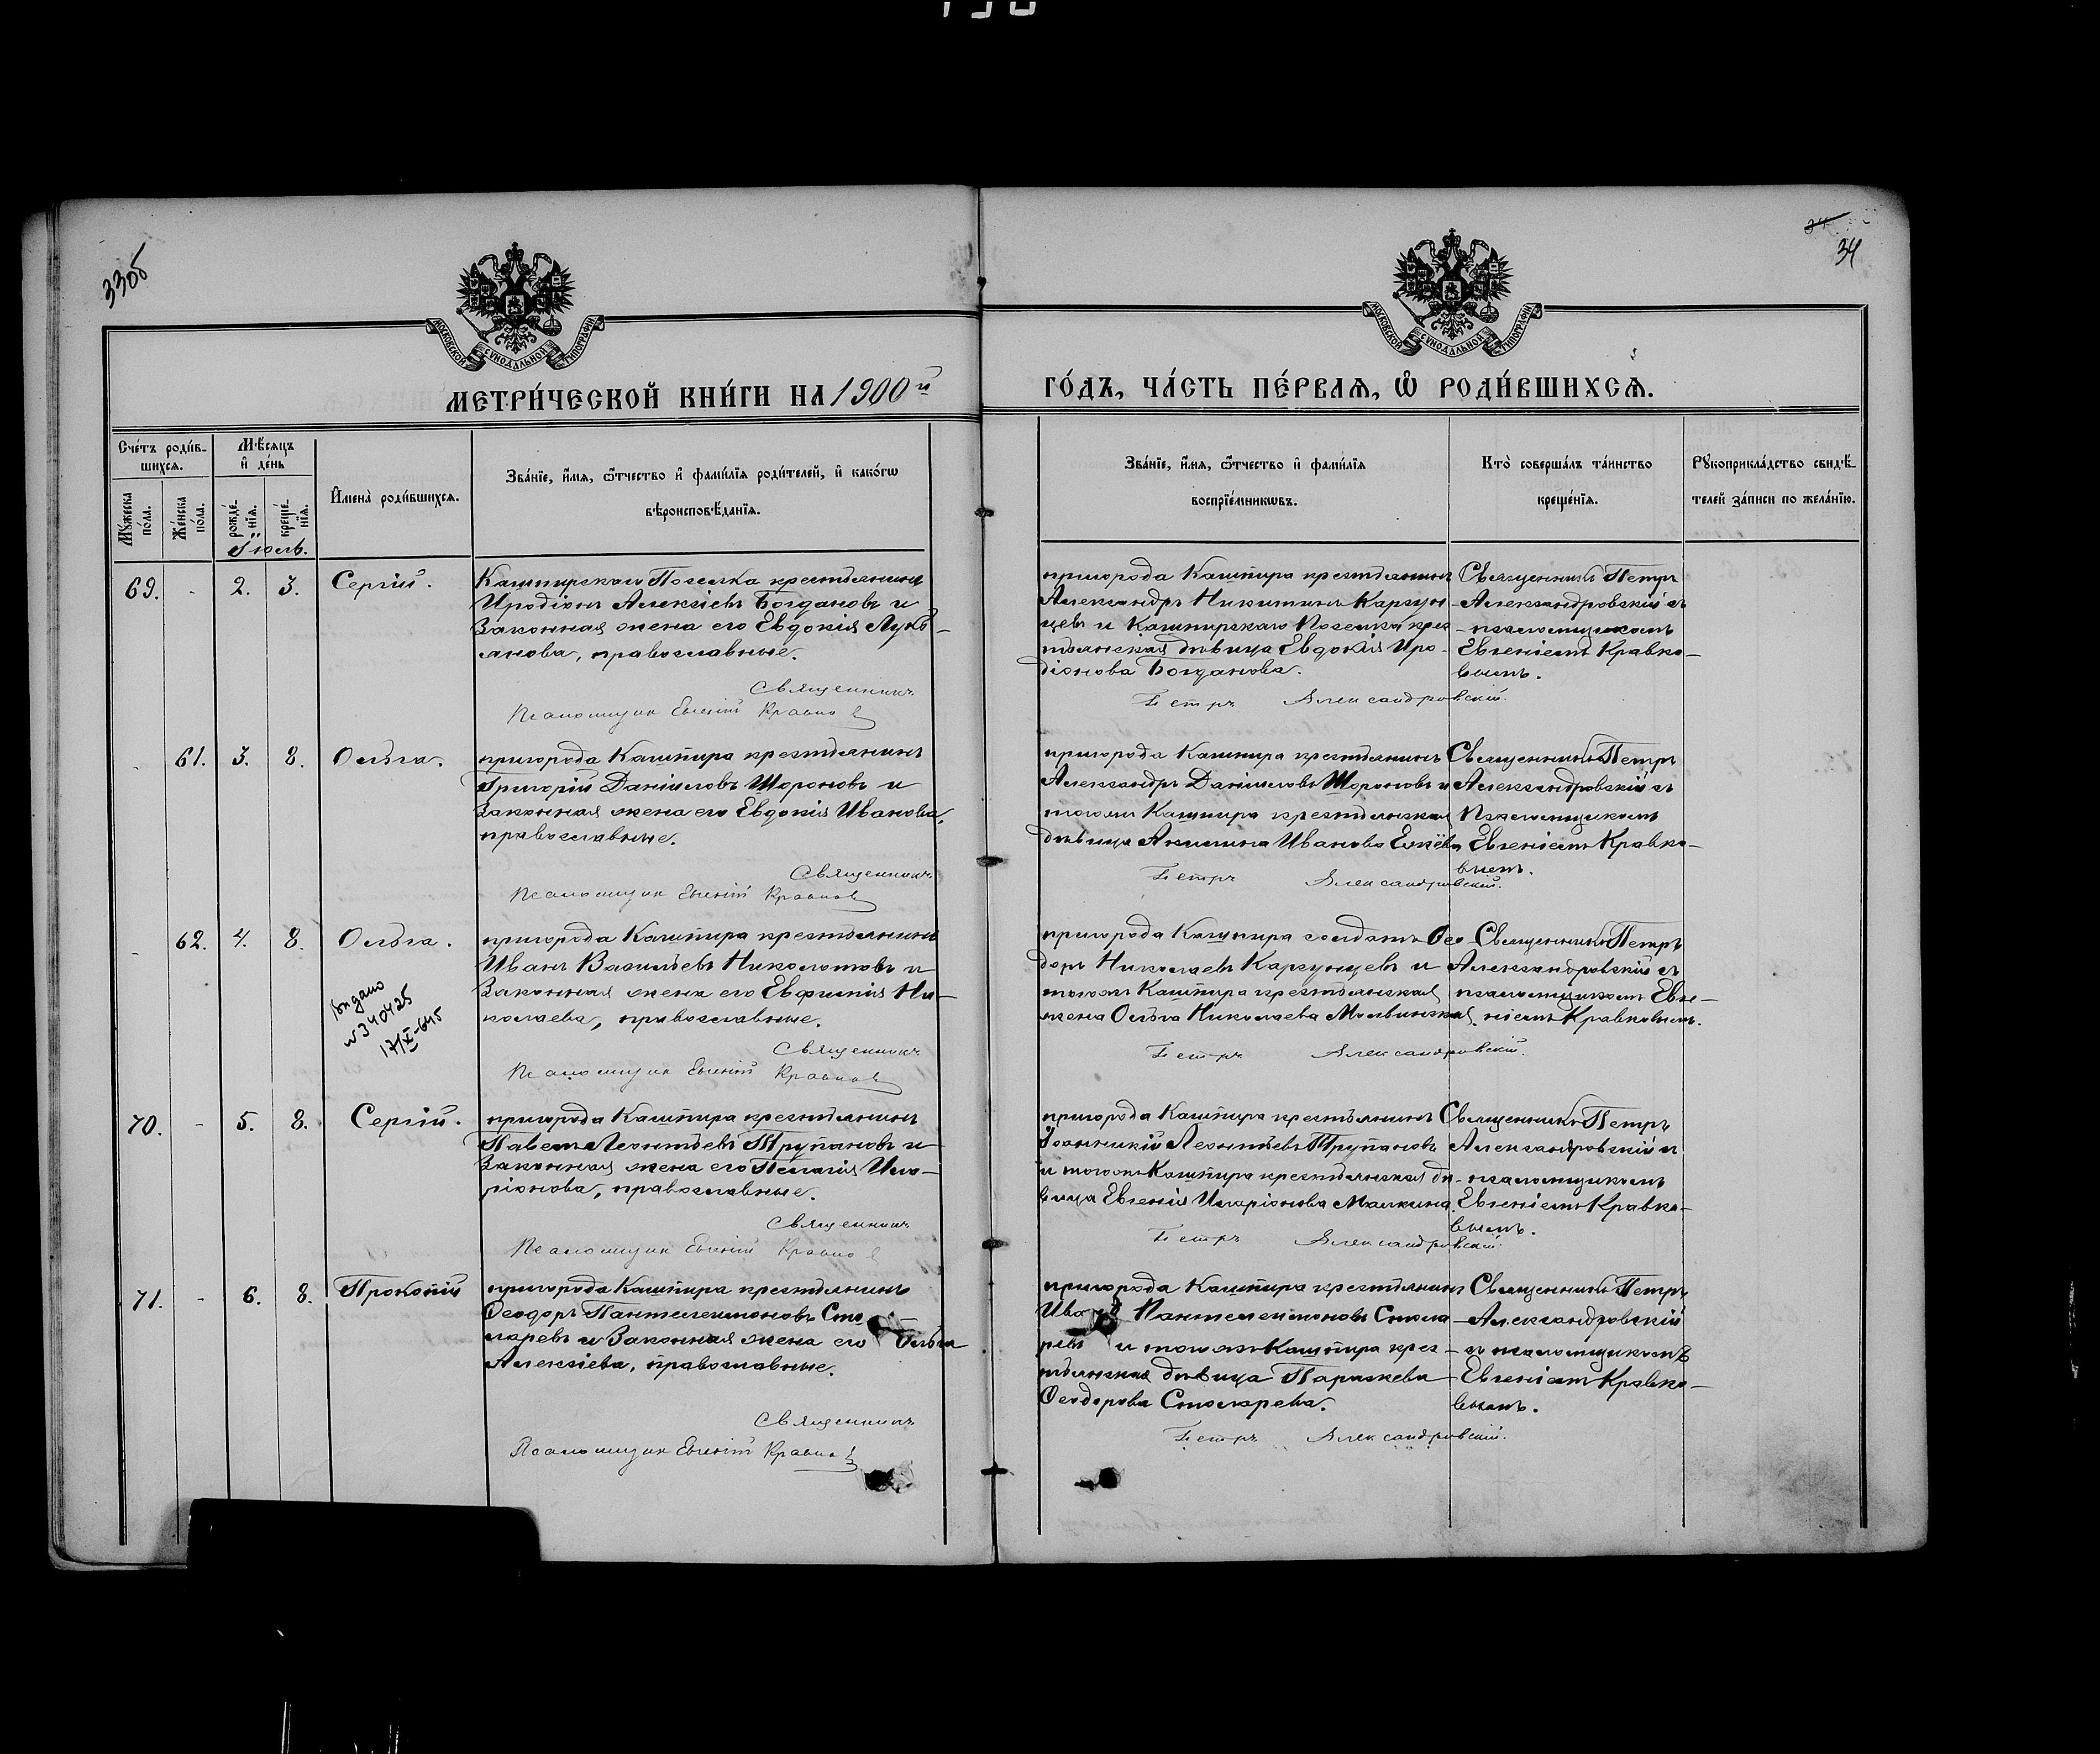 33об
34
34
МОСКОВСКОЙ СѴНОДАЛЬНОЙ ТИПОГРАФІИ
МОСКОВСКОЙ СѴНОДАЛЬНОЙ ТИПОГРАФІИ
МЕТРИ́ЧЕСКОЙ КНИ́ГИ НА 1900й
ГО́ДЪ, ЧА́СТЬ ПЕ́РВАЯ, Ѡ҆ РОДИ́ВШИХСЯ.
Сче́тъ роди́в-
шихся.
Мꙋ́жеска по́ла.
Же́нска по́ла.
Мѣ́сяцъ
и҆ де́нь
рожде́-
нїя.
креще́-
нїя.
Іюль.
И҆мена̀ роди́вшихся.
Зва́нїе, и҆́мя, ѻ҆́тчество и҆ фами́лїя роди́телей, и҆ како́гѡ
вѣроисповѣ́данїя.
Зва́нїе, и҆́мя, ѻ҆́тчество и҆ фами́лїя
воспрїе́мникѡвъ.
Кто̀ соверша́лъ та́инство
креще́нїя.
Рꙋкоприкла́дство свидѣ́-
телей за́писи по жела́нїю.
69. - 2. 3. Сергій.
Кашпирскаго Поселка крестьянинъ
Иродіонъ Алексіевъ Богдановъ и
Законная жена его Евдокія Лукь-
янова, православные.
Священникъ
Псаломщик Евгеній Кравков
пригорода Кашпира крестьянинъ
Александръ Никитинъ Каргун-
цевъ и Кашпирскаго Поселка крес
тьянская дѣвица Евдокія Иро-
діонова Богданова.
Петръ Александровскій.
Священникъ Петръ
Александровскій съ
псаломщикомъ
Евгеніемъ Кравко-
вымъ.
- 61. 3. 8. Ольга.
пригорода Кашпира крестьянинъ
Григорій Даніиловъ Шороновъ и
Законная жена его Евдокія Иванова,
православные.
Священникъ
Псаломщик Евгеній Кравков
пригорода Кашпира крестьянинъ
Александръ Даніиловъ Шороновъ и
тогожъ Кашпира крестьянская
дѣвица Акилина Иванова
Петръ Александровскій.
Священникъ Петръ
Александровскій съ
Псаломщикомъ
Евгеніемъ Кравко-
вымъ.
- 62. 4. 8. Ольга.
выдано
№340425
17/X-645
пригорода Кашпира крестьянинъ
Иванъ Васильевъ Николотовъ и
Законная жена его Евфимія Ни-
колаева, православные.
Священникъ
Псаломщик Евгеній Кравков
пригорода Кашпира солдатъ Ѳео-
доръ Николаевъ Каргунцевъ и
тогожъ Кашпира крестьянская
жена Ольга Николаева
Петръ Александровскій.
Священникъ Петръ
Александровскій съ
псаломщикомъ Евге-
ніемъ Кравковымъ.
70. - 5. 8. Сергій.
пригорода Кашпира крестьянинъ
Павелъ Леонтьевъ Трупановъ и
Законная жена его Пелагія Ила-
ріонова, православные.
Священникъ
Псаломщик Евгеній Кравков
пригорода Кашпира крестьянинъ
Іоанникій Леонтьевъ Трупановъ
и тогожъ Кашпира крестьянская дѣ-
вица Евгенія Иларіонова Малкина.
Петръ Александровскій.
Священникъ Петръ
Александровскій съ
псаломщикомъ
Евгеніемъ Кравко-
вымъ.
71. - 6. 8. Прокопій
пригорода Кашпира крестьянинъ
Ѳеодоръ Пантелеимоновъ Сто-
ляревъ и Законная жена его Ольга
Алексіева, православные.
Священникъ
Псаломщик Евгеній Кравков
пригорода Кашпира крестьянинъ
Иванъ Пантелеимоновъ Столя-
ревъ и тогожъ Кашпира крес-
тьянская дѣвица Параскева
Ѳеодорова Столярева.
Петръ Александровскій.
Священникъ Петръ
Александровскій
съ псаломщикомъ
Евгеніемъ Кравко-
вымъ.